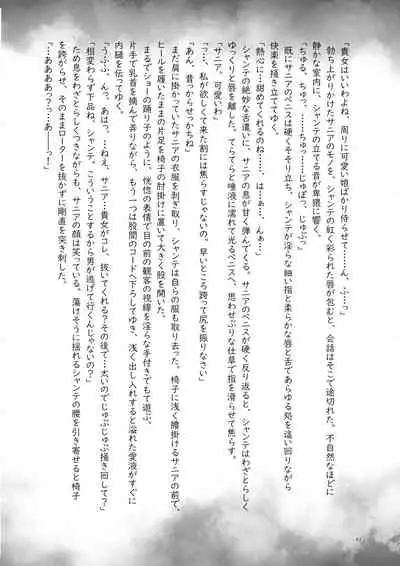 「貴女はいいわよね、周りに可愛い娘ばかり侍らせて……ん、ふ…っ」
勃ち上がりかけたサニアのモノを、シャンテの紅く彩られた唇が包むと、会話はそこで途切れた。不自然なほどに
静かな室内に、シャンテの立てる音が卑猥に響く。
「ちゅる、ちゅっ、……ちゅっ……じゅぽっ、じゅぷっ」
既にサニアのペニスは硬くそそり立ち、シャンテが淫らな細い指と柔らかな唇と舌であらゆる処を這い回りながら
快楽を掻き立ててゆく。
「熱心に…甜めてくれるのね……はぁ…、んぁ…」
シャンテの絶妙な舌遣いに、サニアの息が甘く弾んでゆく。サニアのペニスが硬く反り返ると、シャンテはわざとらしく
ゆっくりと唇を離した。てらてらと唾液に濡れて光るペニスへ、思わせぶりな仕草で指を滑らせて焦らす。
「サニア、可愛いわ」
「っ…、私が欲しくて来た割には焦らすじゃないの。早いところ跨って尻を振りなさい」
「あん、昔からせっかちね」
まだ肩に掛かっていたサニアの衣服を剥ぎ取り、シャンテは自らの服も取り去った。椅子に浅く腰掛けるサニアの前で、
ヒールを履いたままの片足を椅子の肘掛けに置いて大きく股を開いた。
まるでショーの踊り子のように、恍惚の表情で目の前の観客の視線を淫らな手付きでもて遊ぶ。
片手で乳首を摘んで弄りながら、もう一つは股間のコードへ下ろしてゆき、浅く出し入れすると溢れた愛液がすぐに
内腿を伝ってゆく。
「うふふ、んっ、あはっ、…ねぇ、サニア…貴女がコレ、抜いてくれる？その後で…太いのでじゅぷじゅぷ掻き回して？」
「相変わらず下品ね、シャンテ。こういうことするから男が逃げて行くんじゃないの？」
ため息をわざとらしくつきながらも、サニアの顔は笑っている。蕩けそうに揺れるシャンテの腰を引き寄せると椅子
を跨がらせ、そのままローターを抜かずに剛直を突き刺した。
「…ああああっ？っ…あ――っ！」